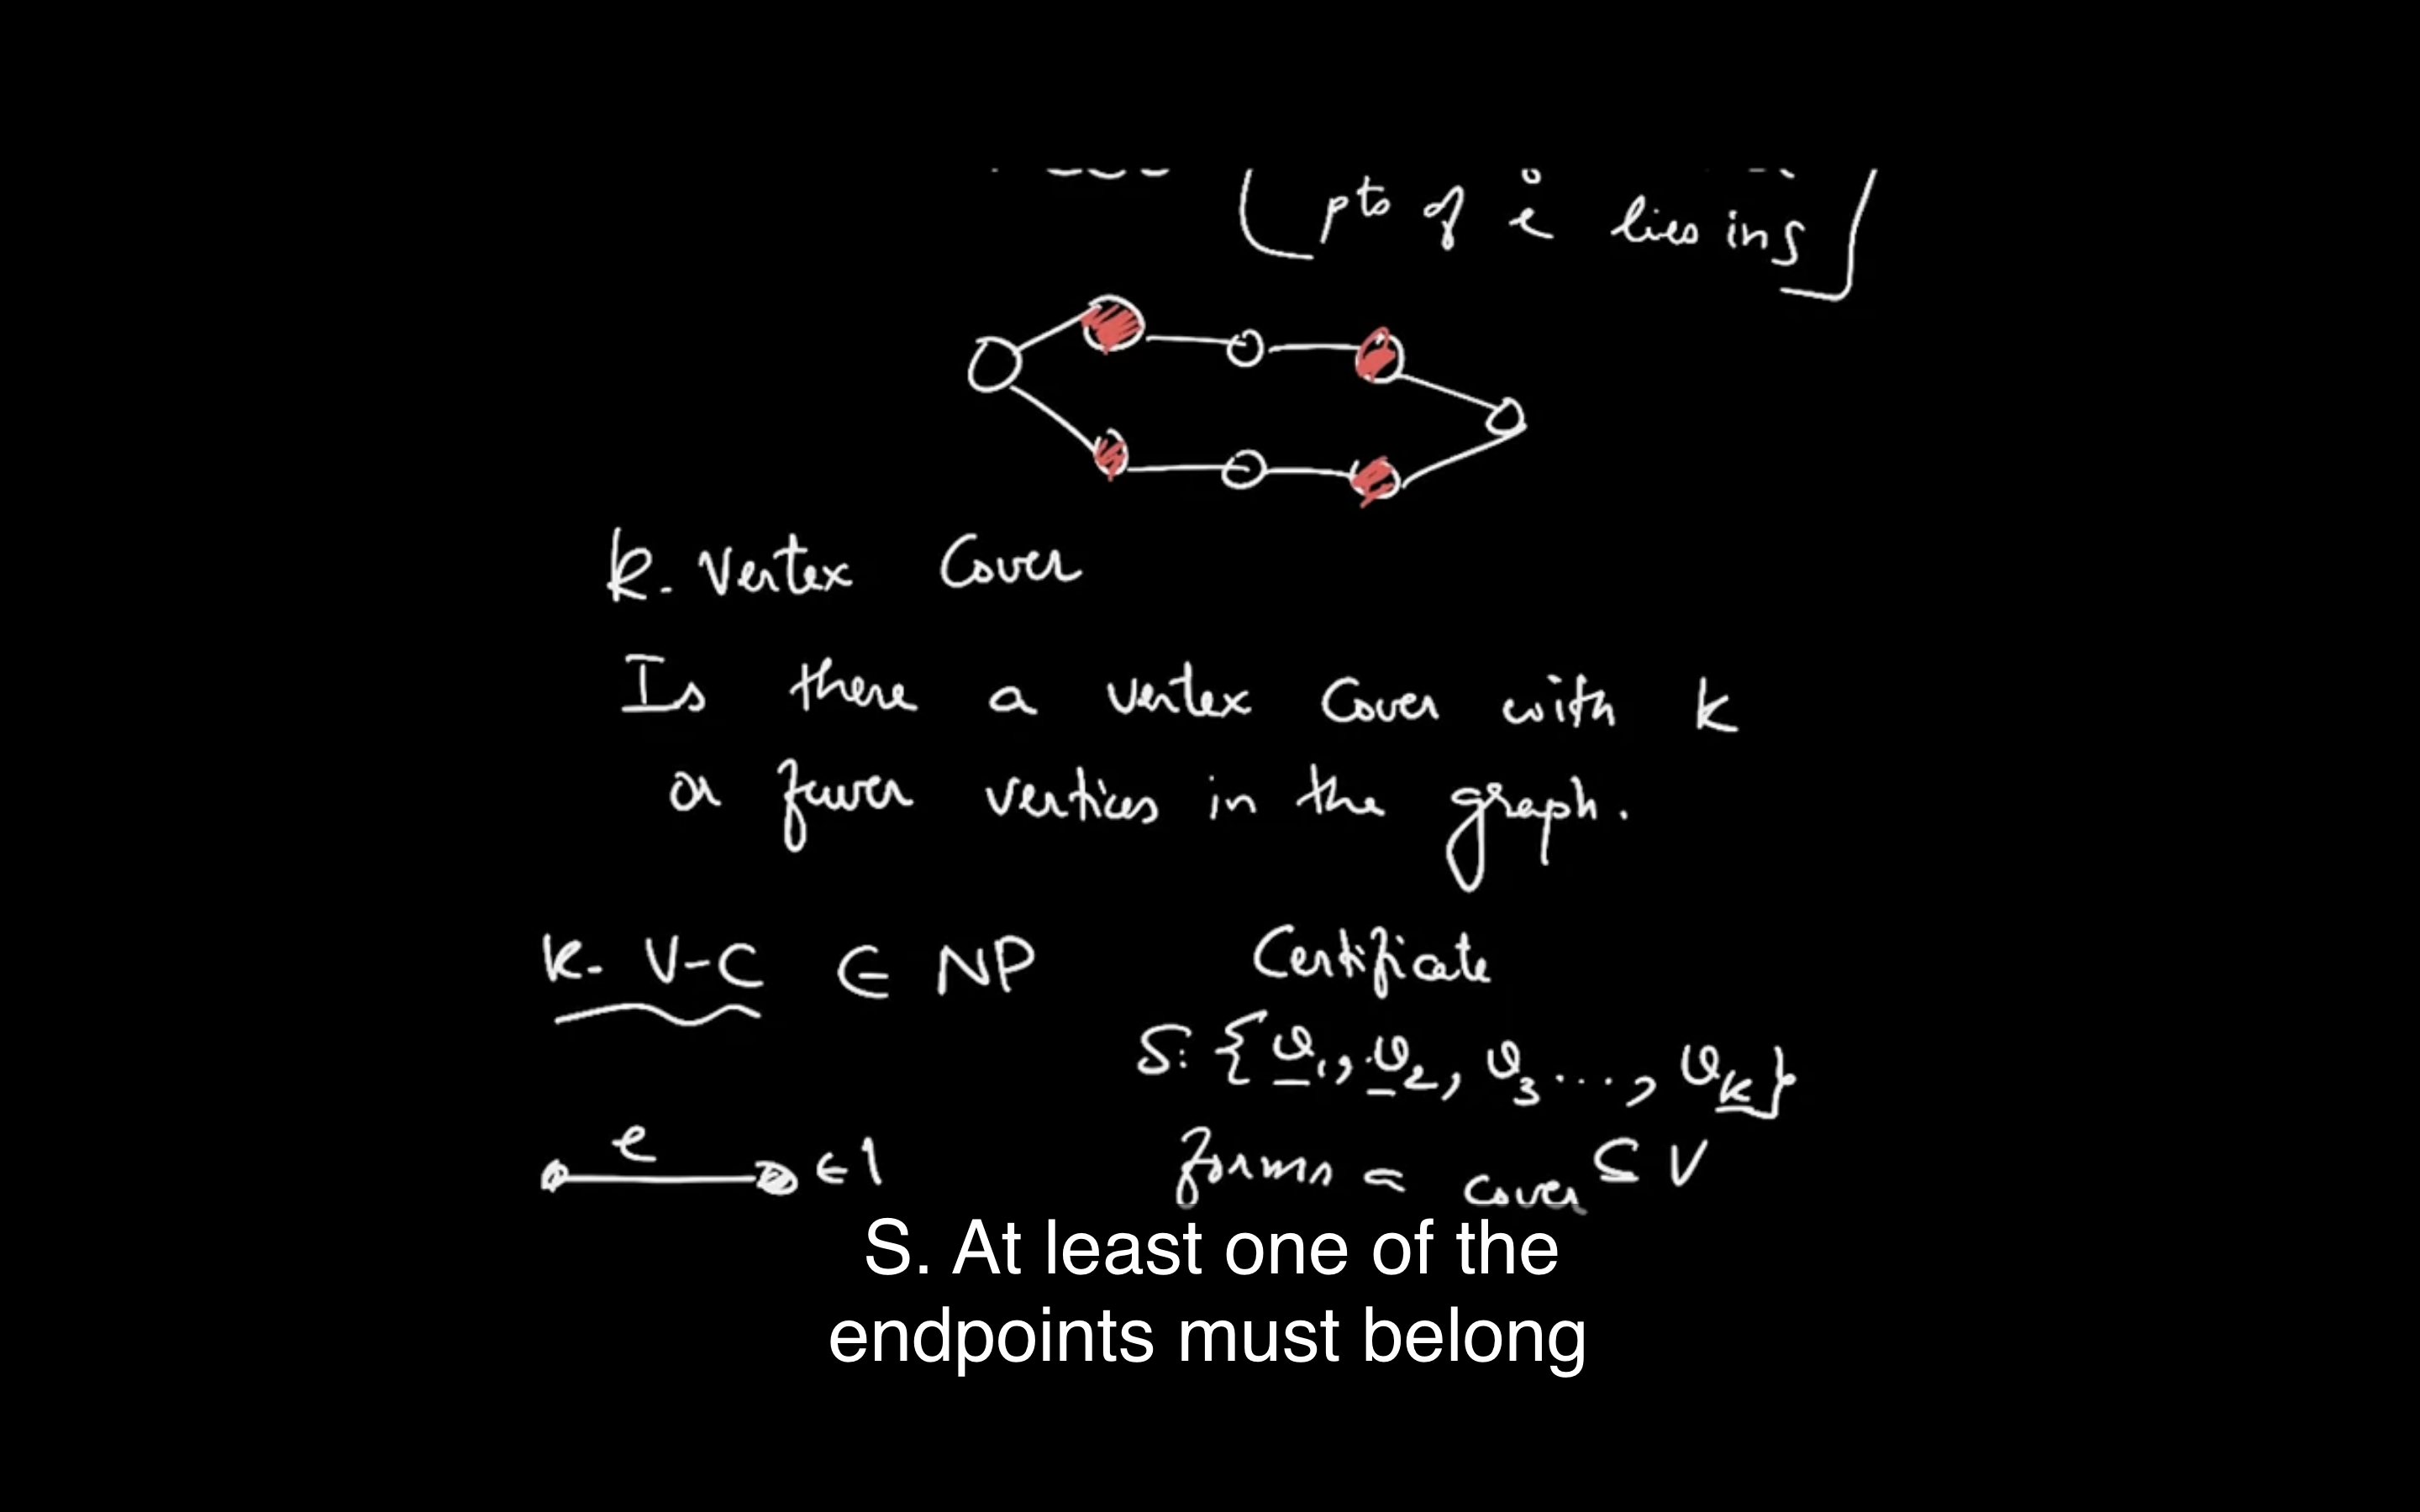 pts of e lies in S
k. Vertex Cover
Is there a vertex cover with k
or fewer vertices in the graph.
k- V-C ∈ NP
Certificate
S: {v₁, v₂, v₃ ..., vₖ}
e
∈
forms a cover ⊆ V
S. At least one of the
endpoints must belong